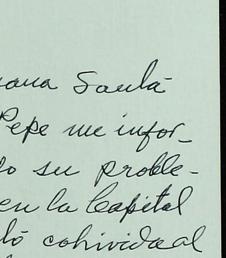 ana Santa-
Pepe me infor-
do su proble-
en la Capital
ló cohivida al